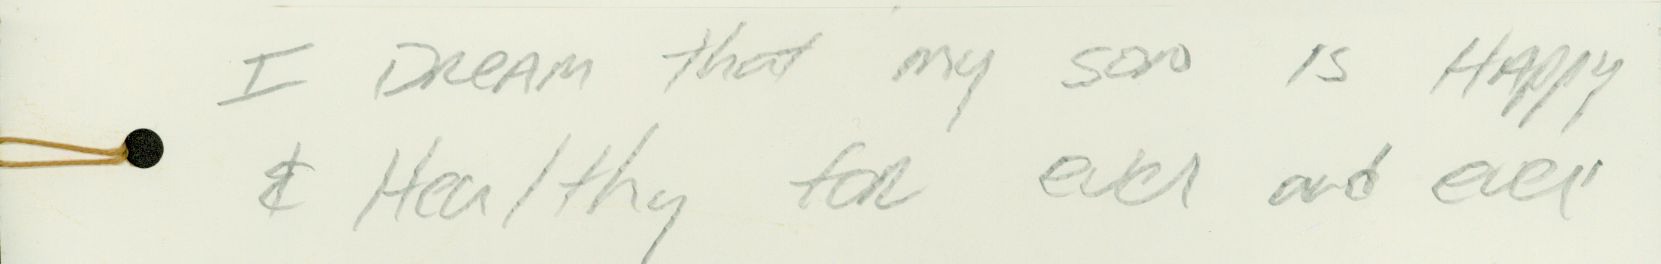 I DREAM that my son is HAppy
& Healthy for ever and ever